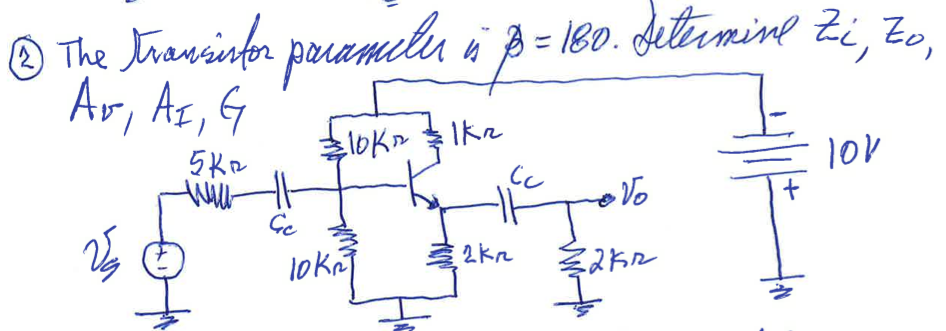 ② The Transistor parameter is β = 180. Determine Zi, Zo,
Av, AI, G
10KΩ
1KΩ
5KΩ
-
10V
+
Cc
Vo
Cc
Vs
+
-
10KΩ
2KΩ
2KΩ